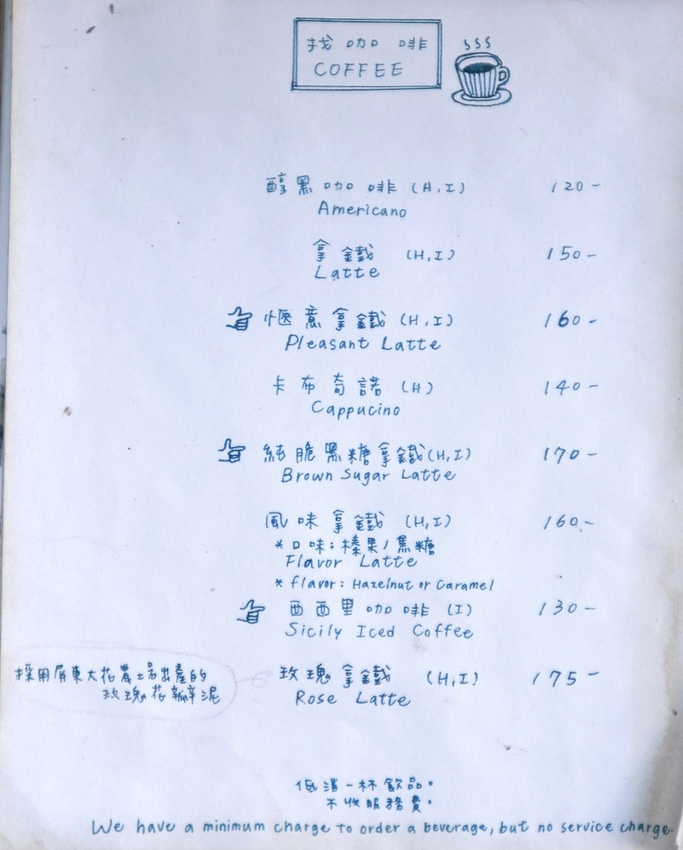 找咖啡
COFFEE
醇黑咖啡 (H,I) 120-
Americano
拿鐵 (H,I) 150-
Latte
愜意拿鐵 (H,I) 160-
Pleasant Latte
卡布奇諾 (H) 140-
Cappucino
純脆黑糖拿鐵 (H,I) 170-
Brown Sugar Latte
風味拿鐵 (H,I) 160-
*口味:榛果/焦糖
Flavor Latte
* flavor: Hazelnut or Caramel
西西里咖啡 (I) 130-
Sicily Iced Coffee
採用屏東大花農場出產的
玫瑰花瓣泥
玫瑰拿鐵 (H,I) 175-
Rose Latte
低消一杯飲品。
不收服務費。
We have a minimum charge to order a beverage, but no service charge.